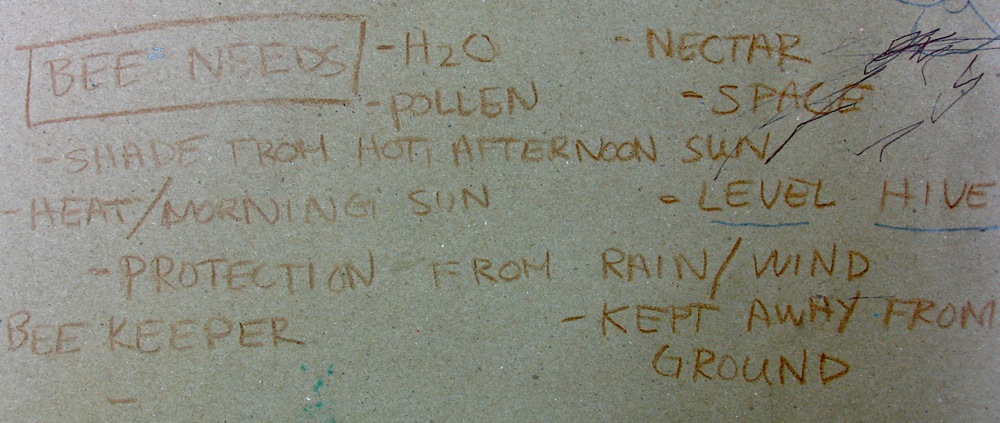 BEE NEEDS - H2O - NECTAR
- POLLEN - SPACE
- SHADE FROM HOT, AFTERNOON SUN
- HEAT/MORNING SUN - LEVEL HIVE
- PROTECTION FROM RAIN/WIND
BEE KEEPER - KEPT AWAY FROM
GROUND
-